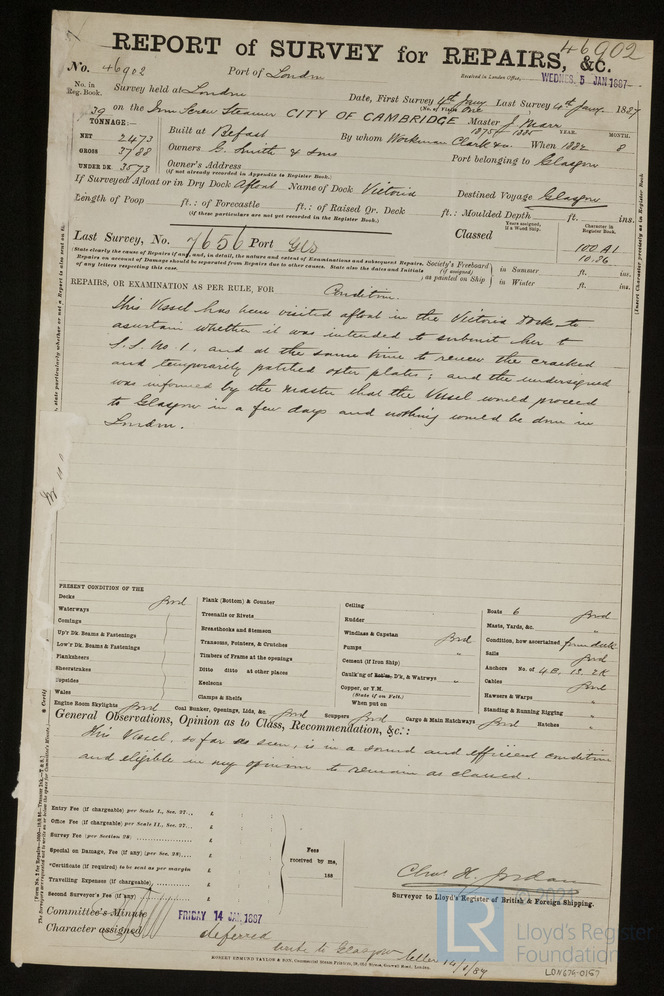 REPORT of SURVEY for REPAIRS, &c. 46902
No. 46902 Port of London Received in London Office, WEDNES. 5 JAN 1887
No. in Reg. Book. Survey held at London Date, First Survey 4th Jany Last Survey 4th Jany 1887
(No. of Visits One)
39 on the Iron Screw Steamer CITY OF CAMBRIDGE Master J. Marr
TONNAGE:—
NET 2473
GROSS 3788
UNDER DK. 3573
Built at Belfast By whom Workman Clark & Co. When 1882 8
YEAR. MONTH.
Owners G. Smith & Sons Port belonging to Glasgow
Owner's Address
(If not already recorded in Appendix to Register Book.)
If Surveyed Afloat or in Dry Dock Afloat Name of Dock Victoria Destined Voyage Glasgow
Length of Poop ft.: of Forecastle ft.: of Raised Qr. Deck ft.: Moulded Depth ft. ins.
(If these particulars are not yet recorded in the Register Book.)
Last Survey, No. 7656 Port Gls Classed
Years assigned, if a Wood Ship.
Character in Register Book.
100 A1
10.86
(State clearly the cause of Repairs if any, and, in detail, the nature and extent of Examinations and subsequent Repairs.
Repairs on account of Damage should be separated from Repairs due to other causes. State also the dates and Initials
of any letters respecting this case.
Society's Freeboard (if assigned) as painted on Ship in Summer ft. ins.
in Winter ft. ins.
REPAIRS, OR EXAMINATION AS PER RULE, FOR Condition.
This Vessel has been visited afloat in the Victoria Docks to
ascertain whether it was intended to submit her to
S.S. No. 1. and at the same time to renew the cracked
and temporarily patched oxter plates; and the undersigned
was informed by the Master that the Vessel would proceed
to Glasgow in a few days and nothing would be done in
London.
PRESENT CONDITION OF THE
Decks good
Waterways
Comings
Up'r Dk. Beams & Fastenings
Low'r Dk. Beams & Fastenings
Planksheers
Sheerstrakes
Topsides
Wales
Engine Room Skylights good
Plank (Bottom) & Counter
Treenails or Rivets
Breasthooks and Stemson
Transoms, Pointers, & Crutches
Timbers of Frame at the openings
Ditto ditto at other places
Keelsons
Clamps & Shelfs
Coal Bunker, Openings, Lids, &c. good
Ceiling
Rudder
Windlass & Capstan good
Pumps "
Cement (if Iron Ship)
Caulk'ng of Bottom, D'k, & Watrwys "
Copper, or Y.M.
(State if on Felt.)
When put on
Scuppers good Cargo & Main Hatchways good
Boats 6 good
Masts, Yards, &c. "
Condition, how ascertained from deck
Sails good
Anchors No. of 4B, 1S, 2K
Cables good
Hawsers & Warps "
Standing & Running Rigging "
Hatches "
General Observations, Opinion as to Class, Recommendation, &c.:
This Vessel, so far as seen, is in a sound and efficient condition
and eligible in my opinion to remain as classed.
Entry Fee (if chargeable) per Scale I., Sec. 27... £
Office Fee (if chargeable) per Scale II., Sec. 27... £
Survey Fee (per Section 28) £
Special on Damage, Fee (if any) (per Sec. 28).... £
*Certificate (if required) to be sent as per margin £
Travelling Expenses (if chargeable) £
Second Surveyor's Fee (if any) £
Fees received by me, 188
Chas H. Jordan
Surveyor to Lloyd's Register of British & Foreign Shipping.
Committee's Minute FRIDAY 14 JAN. 1887
Character assigned deferred
write to Glasgow letter 14/1/87
ROBERT EDMUND TAYLOR & SON, Commercial Street Printers, 19, Old Street, Goswell Road, London.
© 2021
LR
Lloyd's Register
Foundation
LON676-0157